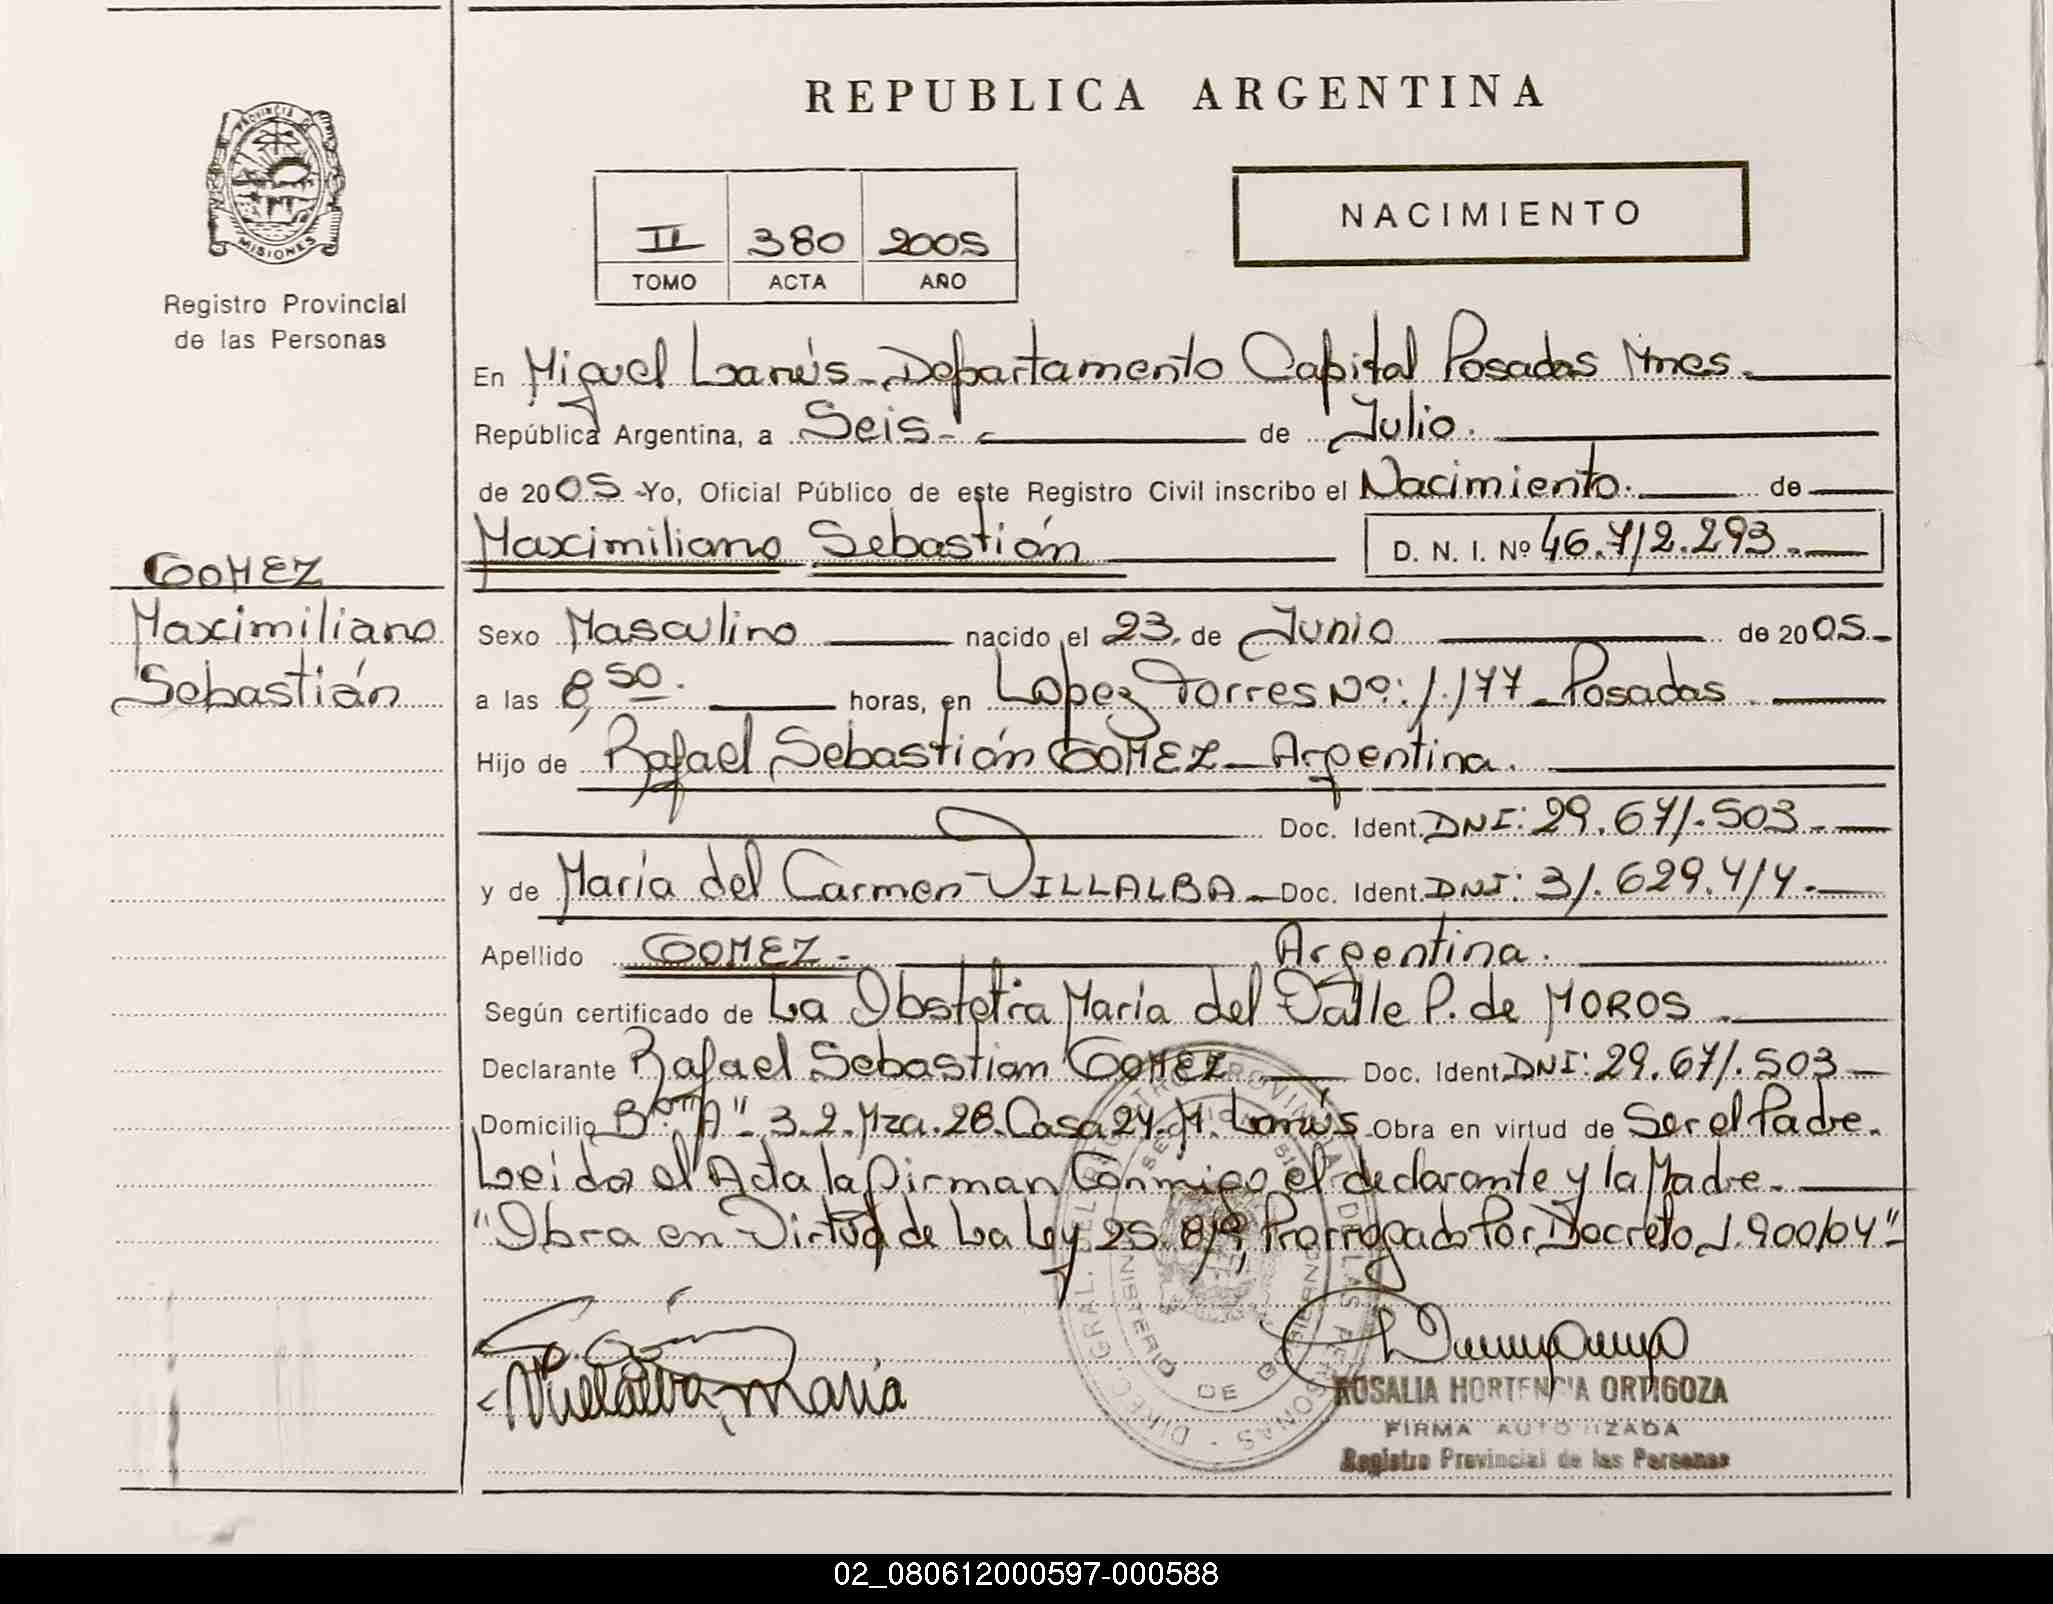 REPUBLICA ARGENTINA
PROVINCIA D
MISIONES
Registro Provincial
de las Personas
II 380 2005
TOMO ACTA AÑO
NACIMIENTO
En Miguel Lanús - Departamento Capital Posadas Mnes.
República Argentina, a Seis.- de Julio.
de 2005 - Yo, Oficial Público de este Registro Civil inscribo el Nacimiento. de
Maximiliano Sebastián D. N. I. Nº 46.712.293.-
GOMEZ
Maximiliano
Sebastián
Sexo Masculino nacido el 23 de Junio de 2005-
a las 8,50. horas, en Lopez Torres Nº: 1.177 - Posadas
Hijo de Rafael Sebastián GOMEZ - Argentina.
Doc. Ident. DNI: 29.671.503.-
y de María del Carmen VILLALBA - Doc. Ident. DNI: 31.629.414.-
Apellido GOMEZ.- Argentina.
Según certificado de La Obstetra María del Valle P. de MOROS
Declarante Rafael Sebastian GOMEZ Doc. Ident. DNI: 29.671.503-
Domicilio Bº "A" 3.2. Mza. 28. Casa 24. M. Lanús - Obra en virtud de Ser el Padre.
Leida el Acta la firman Conmigo el declarante y la Madre.
"Obra en Virtud de La Ley 25.819, Prorrogado Por Decreto 1.900/04"-
Villalba maria
DIREC. GRAL. DEL REGISTRO PROVINCIAL DE LAS PERSONAS
MINISTERIO DE GOBIERNO
ROSALIA HORTENCIA ORTIGOZA
FIRMA AUTORIZADA
Registro Provincial de las Personas
02_080612000597-000588